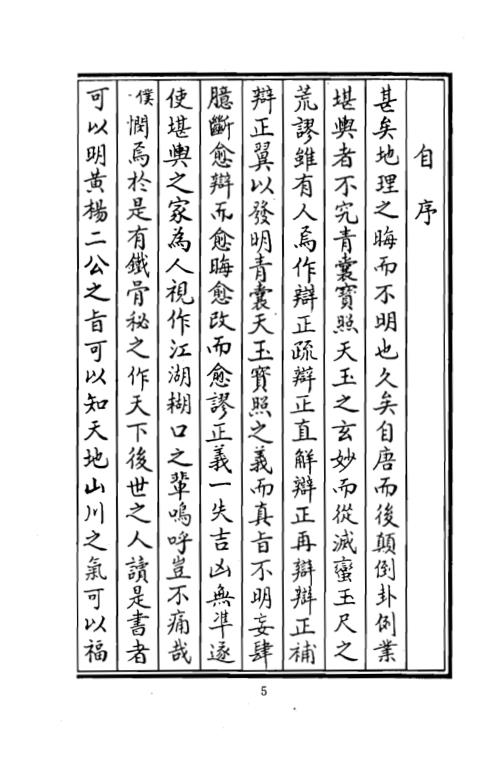 自序
甚矣地理之晦而不明也久矣自唐而後顛倒卦例業
堪輿者不究青囊寶照天玉之玄妙而從滅蠻玉尺之
荒謬雖有人焉作辯正疏辯正直解辯正再辯辯正補
辯正翼以發明青囊天玉寶照之義而真旨不明妄肆
臆斷愈辯而愈晦愈改而愈謬正義一失吉凶無準遂
使堪輿之家為人視作江湖糊口之輩嗚呼豈不痛哉
僕憫焉於是有鐵骨秘之作天下後世之人讀是書者
可以明黃楊二公之旨可以知天地山川之氣可以福
5